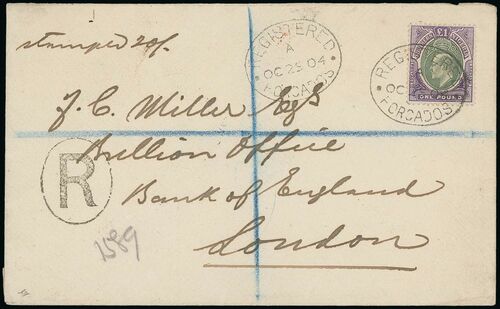 stamped 20/-
REGISTERED
A
OC 25 04
FORCADOS
£1
ONE POUND
REG
OC
FORCADOS
J. C. Miller Esq
Bullion Office
Bank of England
London
R
1589